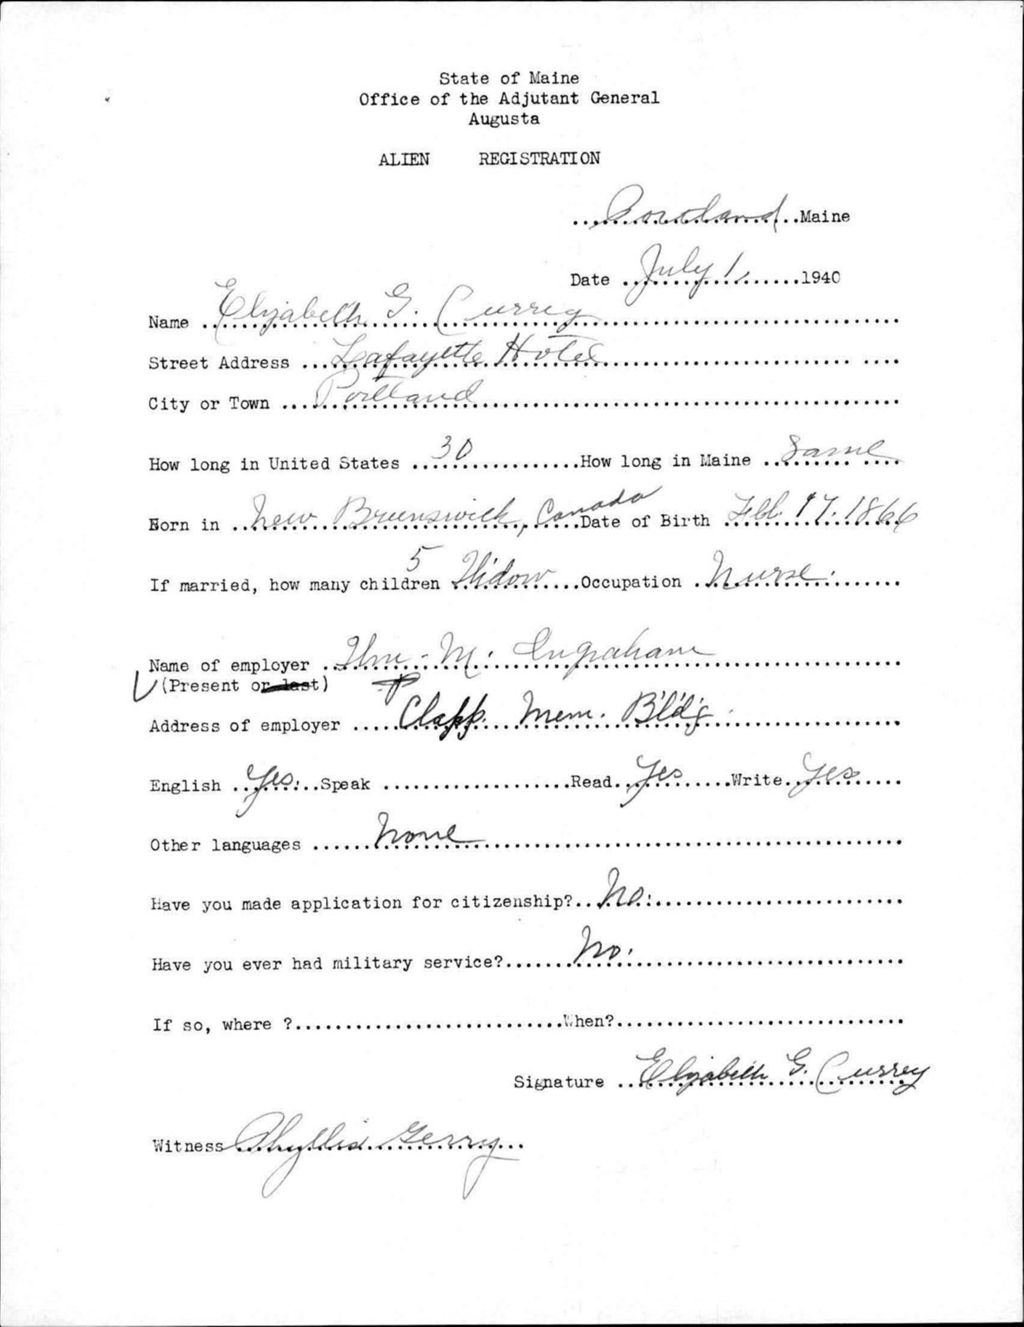 State of Maine
Office of the Adjutant General
Augusta
ALIEN REGISTRATION
Portland Maine
Date July 1, 1940
Name Elizabeth G. Currey
Street Address Lafayette Hotel
City or Town Portland
How long in United States 30 How long in Maine Same
Born in New Brunswick, Canada Date of Birth Feb. 17. 1866
If married, how many children 5 Widow Occupation Nurse.
Name of employer Wm. M. Ingraham
(Present or last)
Address of employer Clapp. Mem. Bldg.
English Yes. Speak Read Yes Write Yes
Other languages None
Have you made application for citizenship? No.
Have you ever had military service? No.
If so, where ? When?
Signature Elizabeth G. Currey
Witness Phyllis Gerry